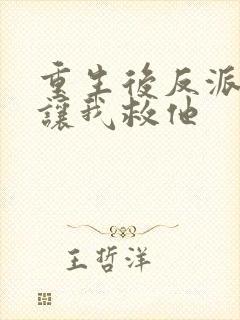 重生後反派
讓我救他
王哲洋